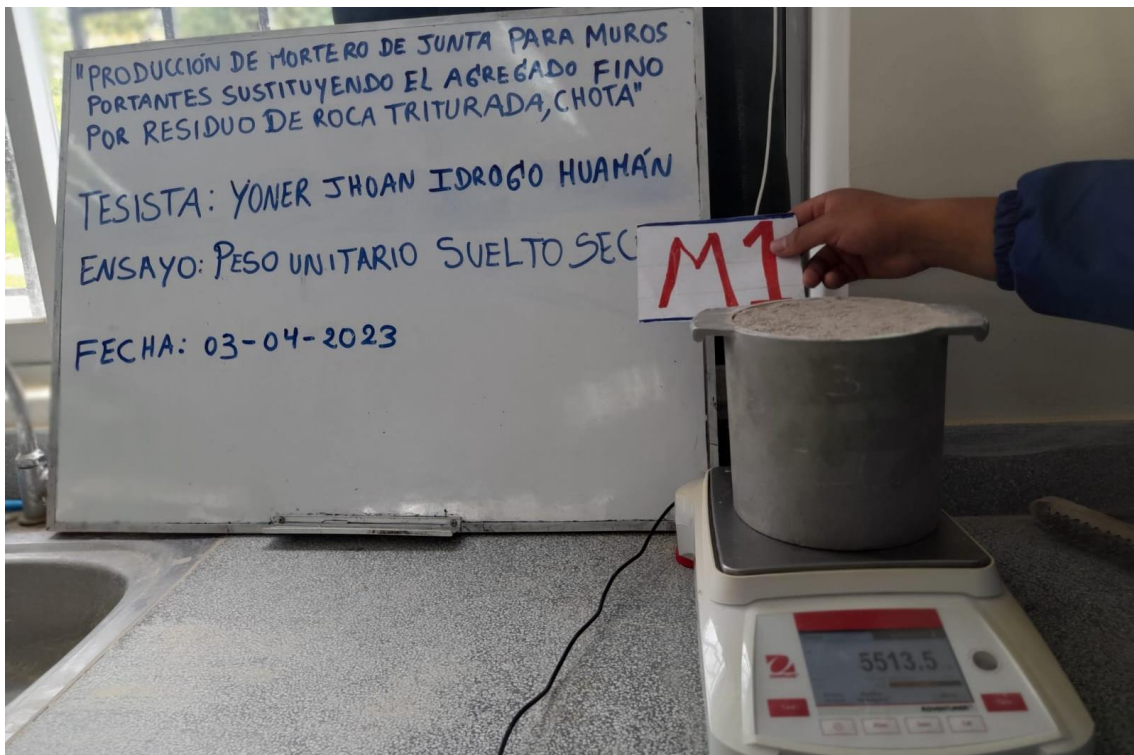 "PRODUCCIÓN DE MORTERO DE JUNTA PARA MUROS
PORTANTES SUSTITUYENDO EL AGREGADO FINO
POR RESIDUO DE ROCA TRITURADA, CHOTA"
TESISTA: YONER JHOAN IDROGO HUAMÁN
ENSAYO: PESO UNITARIO SUELTO SEC
FECHA: 03-04-2023
M1
5513.5